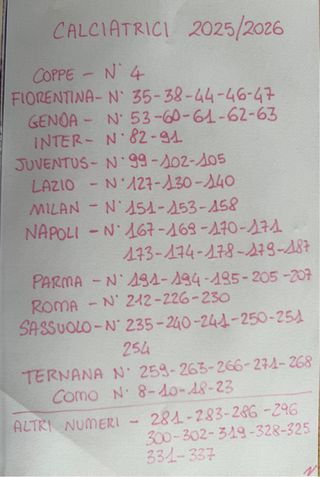 CALCIATRICI 2025/2026
COPPE - N° 4
FIORENTINA - N° 35-38-44-46-47
GENOA - N° 53-60-61-62-63
INTER - N° 82-91
JUVENTUS - N° 99-102-105
LAZIO - N° 127-130-140
MILAN - N° 151-153-158
NAPOLI - N° 167-169-170-171
173-174-178-179-187
PARMA - N° 191-194-195-205-207
ROMA - N° 212-226-230
SASSUOLO - N° 235-240-241-250-251
254
TERNANA N° 259-263-266-271-268
COMO N° 8-10-18-23
ALTRI NUMERI - 281-283-286-296
300-302-319-328-325
331-337